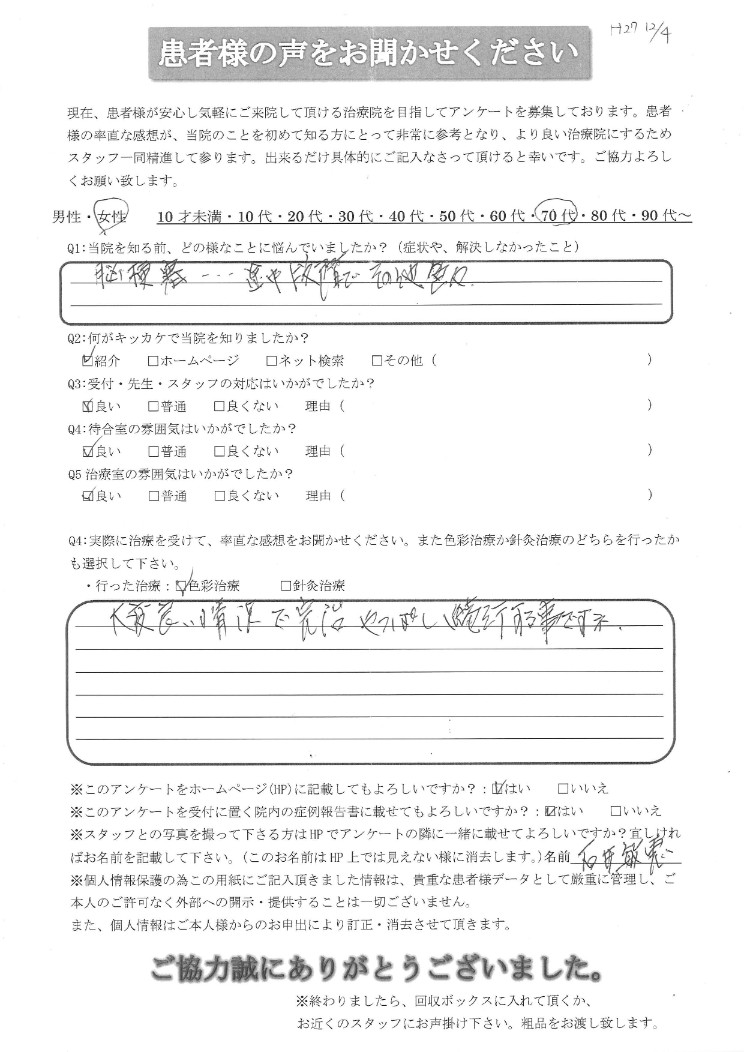 H27 12/4
患者様の声をお聞かせください
現在、患者様が安心し気軽にご来院して頂ける治療院を目指してアンケートを募集しております。患者
様の率直な感想が、当院のことを初めて知る方にとって非常に参考となり、より良い治療院にするため
スタッフ一同精進して参ります。出来るだけ具体的にご記入なさって頂けると幸いです。ご協力よろし
くお願い致します。
男性・女性 10才未満・10代・20代・30代・40代・50代・60代・70代・80代・90代～
Q1:当院を知る前、どの様なことに悩んでいましたか？（症状や、解決しなかったこと）
脳梗塞
Q2:何がキッカケで当院を知りましたか？
☑紹介 □ホームページ □ネット検索 □その他（ ）
Q3:受付・先生・スタッフの対応はいかがでしたか？
☑良い □普通 □良くない 理由（ ）
Q4:待合室の雰囲気はいかがでしたか？
☑良い □普通 □良くない 理由（ ）
Q5治療室の雰囲気はいかがでしたか？
☑良い □普通 □良くない 理由（ ）
Q4:実際に治療を受けて、率直な感想をお聞かせください。また色彩治療か針灸治療のどちらを行ったか
も選択して下さい。
・行った治療：☑色彩治療 □針灸治療
大変良い
※このアンケートをホームページ(HP)に記載してもよろしいですか？：☑はい □いいえ
※このアンケートを受付に置く院内の症例報告書に載せてもよろしいですか？：☑はい □いいえ
※スタッフとの写真を撮って下さる方はHPでアンケートの隣に一緒に載せてよろしいですか？宜しけれ
ばお名前を記載して下さい。（このお名前はHP上では見えない様に消去します。）名前 石井
※個人情報保護の為この用紙にご記入頂きました情報は、貴重な患者様データとして厳重に管理し、ご
本人のご許可なく外部への開示・提供することは一切ございません。
また、個人情報はご本人様からのお申出により訂正・消去させて頂きます。
ご協力誠にありがとうございました。
※終わりましたら、回収ボックスに入れて頂くか、
お近くのスタッフにお声掛け下さい。粗品をお渡し致します。